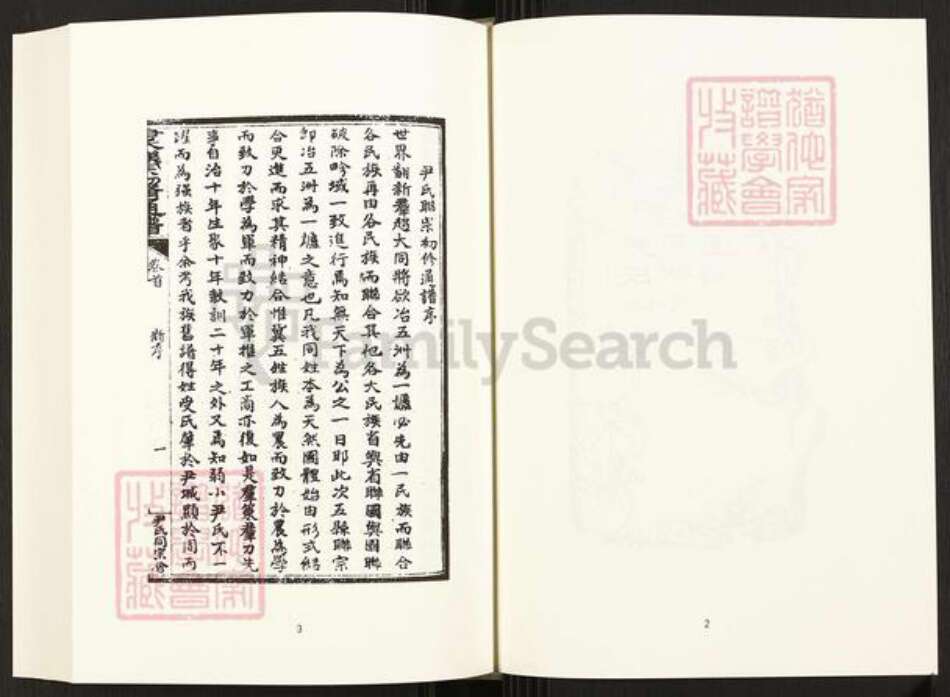 尹氏聯宗初修通譜序
世界翻新羣趨大同將欲冶五洲為一爐必先由一民族而聯合
各民族再由各民族而聯合其他各大民族省與省聯國與國聯
破除畛域一致進行焉知無天下為公之一日耶此次五縣聯宗
即冶五洲為一爐之意也凡我同姓本為天然團體始由形式結
合更進而求其精神結合惟冀五姓族人為農而致力於農為學
而致力於學為軍而致力於軍推之工商亦復如是羣策羣力先
事自治十年生聚十年教訓二十年之外又焉知弱小尹氏不一
躍而為强族者乎余考我族舊譜得姓受氏肇於尹城顯於周而
卷首
一
尹氏同宗會
3
2
猶他家
譜學會
收藏
猶他家
譜學會
收藏
FamilySearch